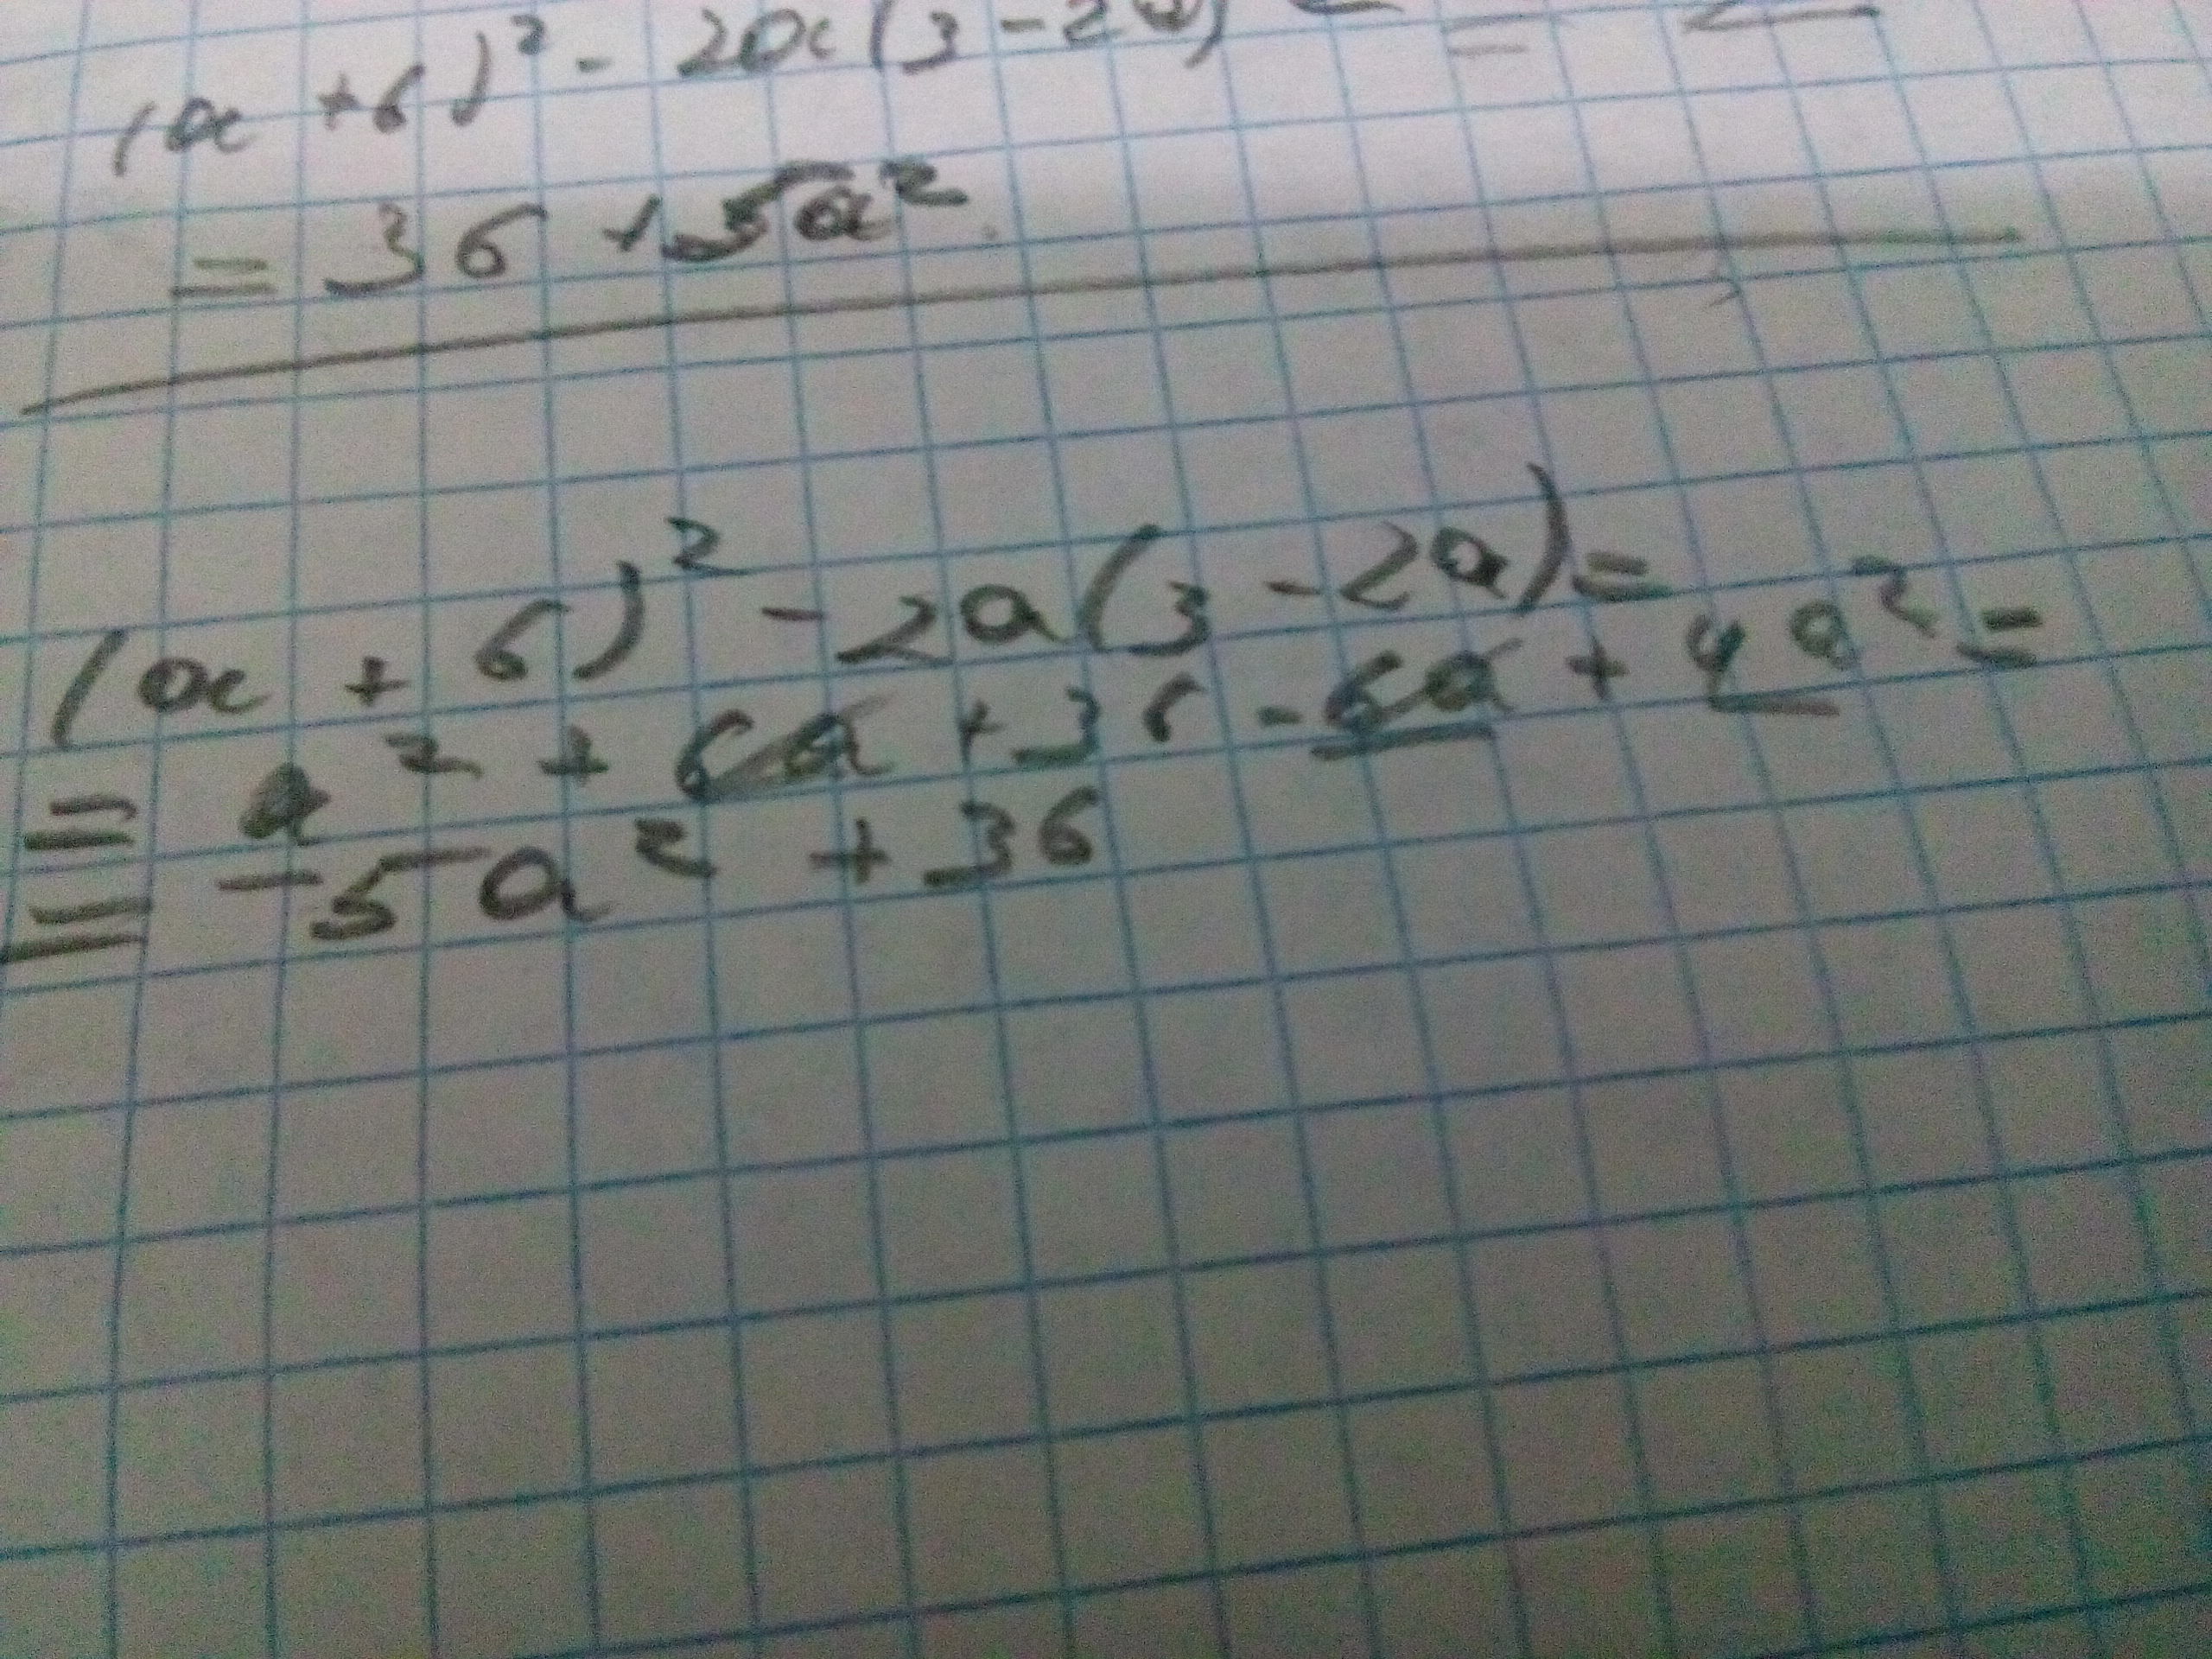 (a + 6)² - 2a(3 - 2a) =
= 36 + 5a²
(a + 6)² - 2a(3 - 2a) =
= a² + 6a + 36 - 6a + 4a² =
= -5a² + 36